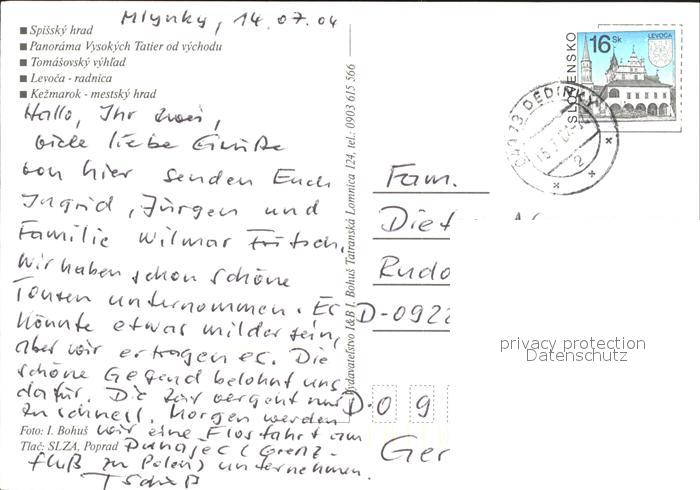 Mlynky, 14.07.04
Spišský hrad
Panoráma Vysokých Tatier od východu
Tomášovský výhľad
Levoča - radnica
Kežmarok - mestský hrad
Hallo, Ihr zwei,
viele liebe Grüße
von hier senden Euch
Ingrid, Jürgen und
Familie Wilmar Fritsch.
Wir haben schon schöne
Touren unternommen. Es
könnte etwas milder sein,
aber wir ertragen es. Die
schöne Gegend belohnt uns
dafür. Die Zeit vergeht nur
zu schnell. Morgen werden
wir eine Flosfahrt am
Dunajec (Grenz-
fluß zu Polen) unternehmen.
Tschüß
Foto: I. Bohuš
Tlač: SLZA, Poprad
Vydavateľstvo I&B I. Bohuš Tatranská Lomnica 124, tel.: 0903 615 566
SLOVENSKO
16 Sk
LEVOČA
DEDINKY
2
Fam.
Diet
Rudo
D-0922
D-09
Ger
privacy protection
Datenschutz